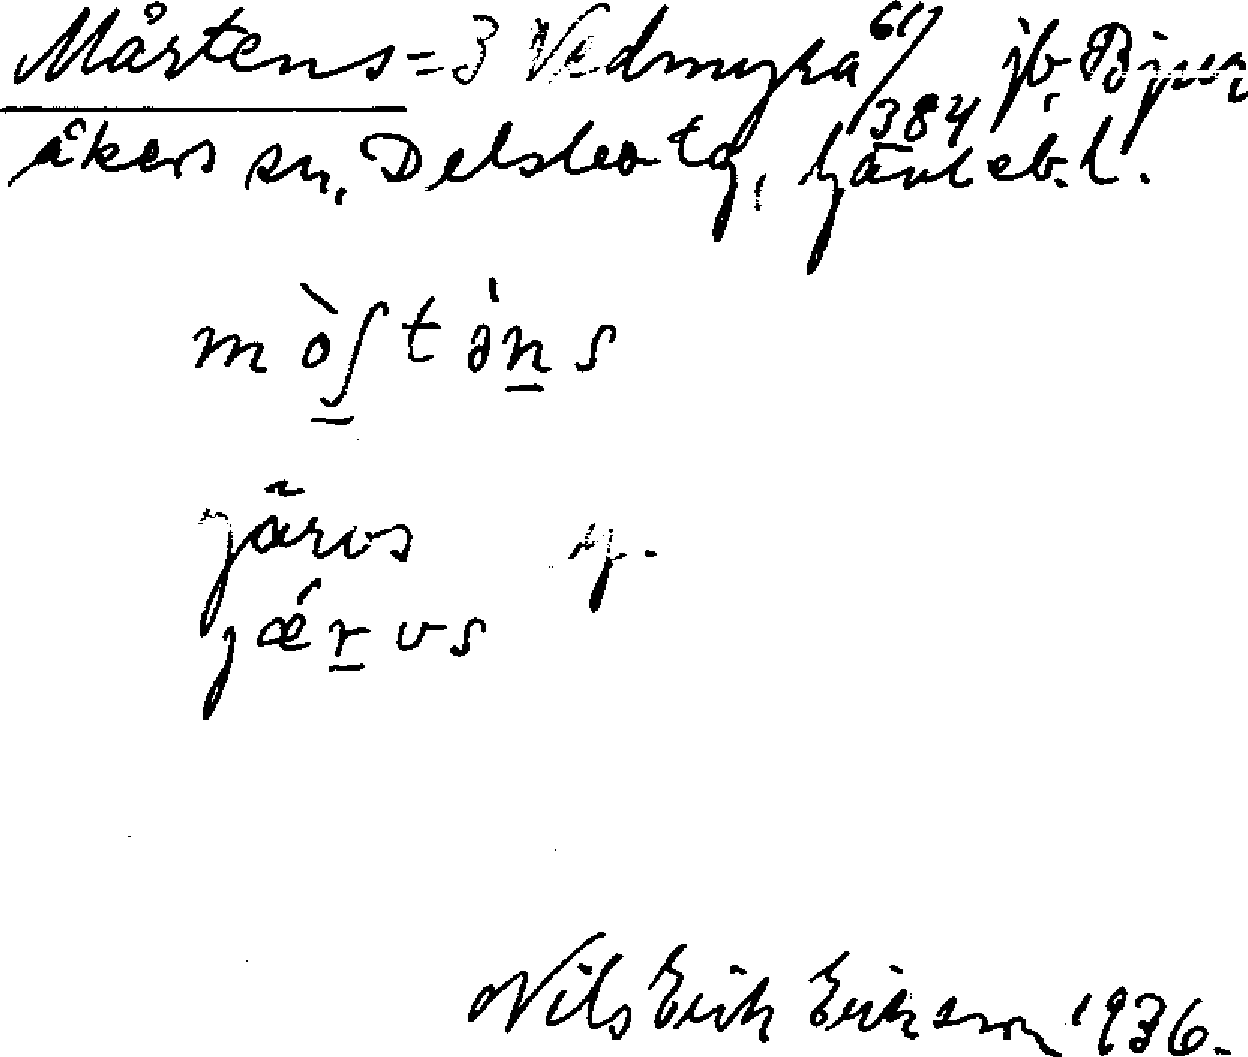 Mårtens = 3 Vedmyra 61/384 jb, Bjur
åkers sn, Delsbo tg, Gävleb.l.
mòʃtəns
Järvs g.
jǽrvs
Nils Erik Eriksson 1936.